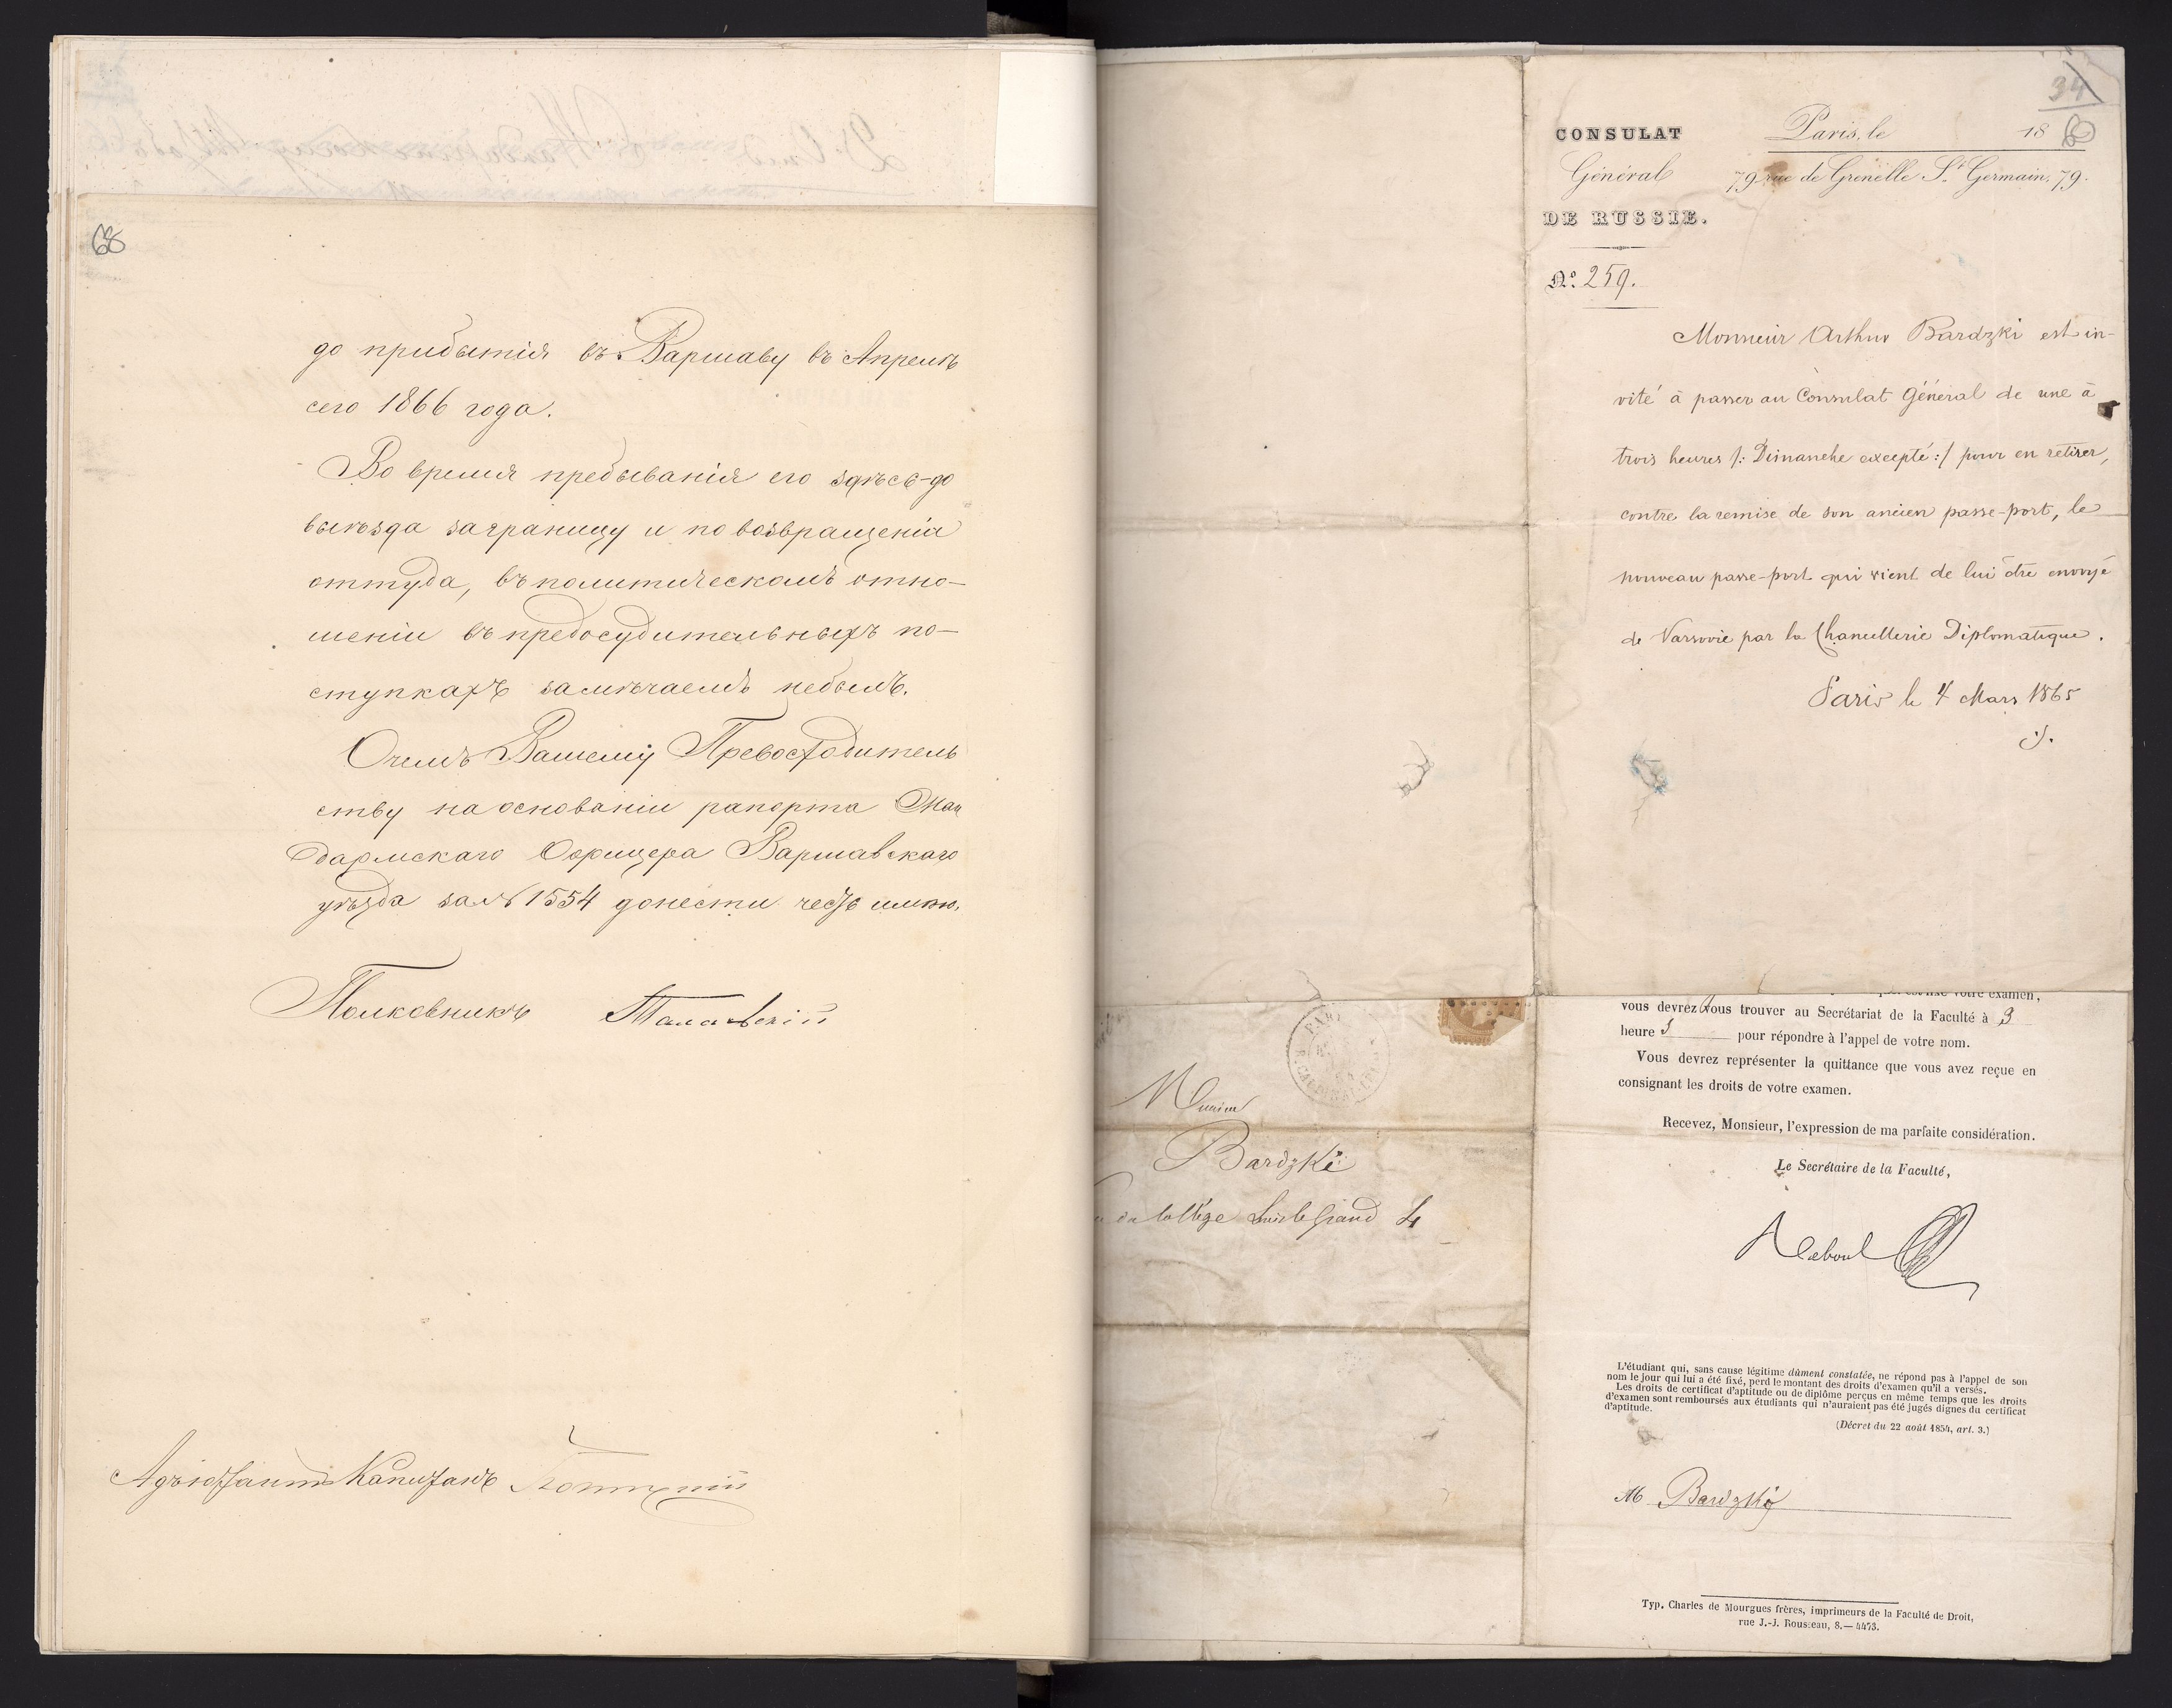 68
до прибытія въ Варшаву въ Апрелѣ
сего 1866 года.
Во время пребыванія его здѣсь-до
выѣзда заграницу и по возвращеніи
оттуда, въ политическомъ отно-
шеніи въ предосудительныхъ по-
ступкахъ замѣчаемъ небылъ.
Очемъ Вашему Превосходитель
ству на основаніи рапорта Жан
дармскаго Офицера Варшавскаго
уѣзда за № 1554 донести честь имѣю.
Полковникъ
Адъютантъ Капитанъ
34
CONSULAT
Général
DE RUSSIE.
Paris, le 18
79 rue de Grenelle St. Germain, 79.
№ 259.
Monsieur Arthur Bardzki est in-
vité à passer au Consulat Général de une à
trois heures /: Dimanche excepté :/ pour en retirer,
contre la remise de son ancien passe-port, le
nouveau passe-port qui vient de lui être envoyé
de Varsovie par la Chancellerie Diplomatique.
Paris le 4 Mars 1865
Monsieur
Bardzki
du Collège Louis le Grand 4
votre examen,
vous devrez vous trouver au Secrétariat de la Faculté à 3
heure s pour répondre à l'appel de votre nom.
Vous devrez représenter la quittance que vous avez reçue en
consignant les droits de votre examen.
Recevez, Monsieur, l'expression de ma parfaite considération.
Le Secrétaire de la Faculté,
Reboul
L'étudiant qui, sans cause légitime dûment constatée, ne répond pas à l'appel de son
nom le jour qui lui a été fixé, perd le montant des droits d'examen qu'il a versés.
Les droits de certificat d'aptitude ou de diplôme perçus en même temps que les droits
d'examen sont remboursés aux étudiants qui n'auraient pas été jugés dignes du certificat
d'aptitude.
(Décret du 22 août 1854, art. 3.)
M Bardzky
Typ. Charles de Mourgues frères, imprimeurs de la Faculté de Droit,
rue J.-J. Rousseau, 8.— 4473.